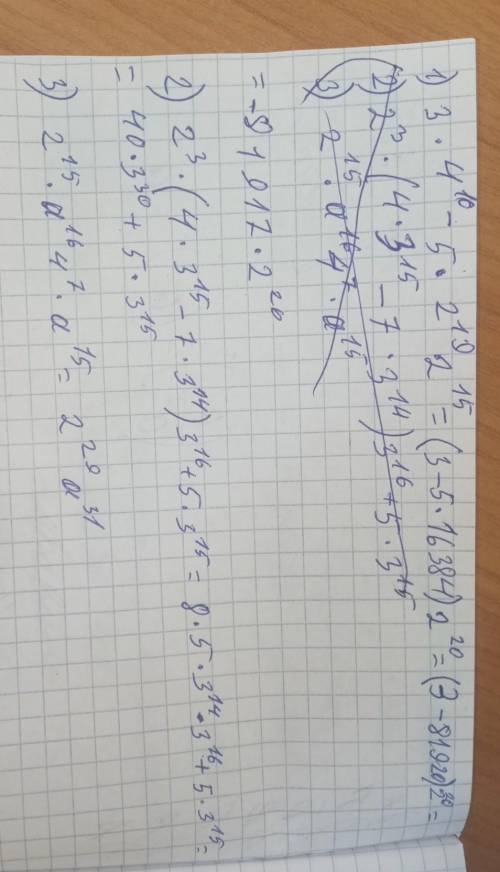 1) 3 · 4¹⁰ − 5 · 2¹⁹ 2¹⁵ = (3 − 5 · 16384) 2²⁰ = (3 − 81920) 2²⁰ =
2) 2³ · (4 · 3¹⁵ − 7 · 3¹⁴) 3¹⁶ + 5 · 3¹⁵
3) 2¹⁵ · a¹⁶ 4⁷ · a¹⁵
= −81917 · 2²⁰
2) 2³ · (4 · 3¹⁵ − 7 · 3¹⁴) 3¹⁶ + 5 · 3¹⁵ = 8 · 5 · 3¹⁴ · 3¹⁶ + 5 · 3¹⁵ =
= 40 · 3³⁰ + 5 · 3¹⁵
3) 2¹⁵ · a¹⁶ 4⁷ · a¹⁵ = 2²⁹ a³¹